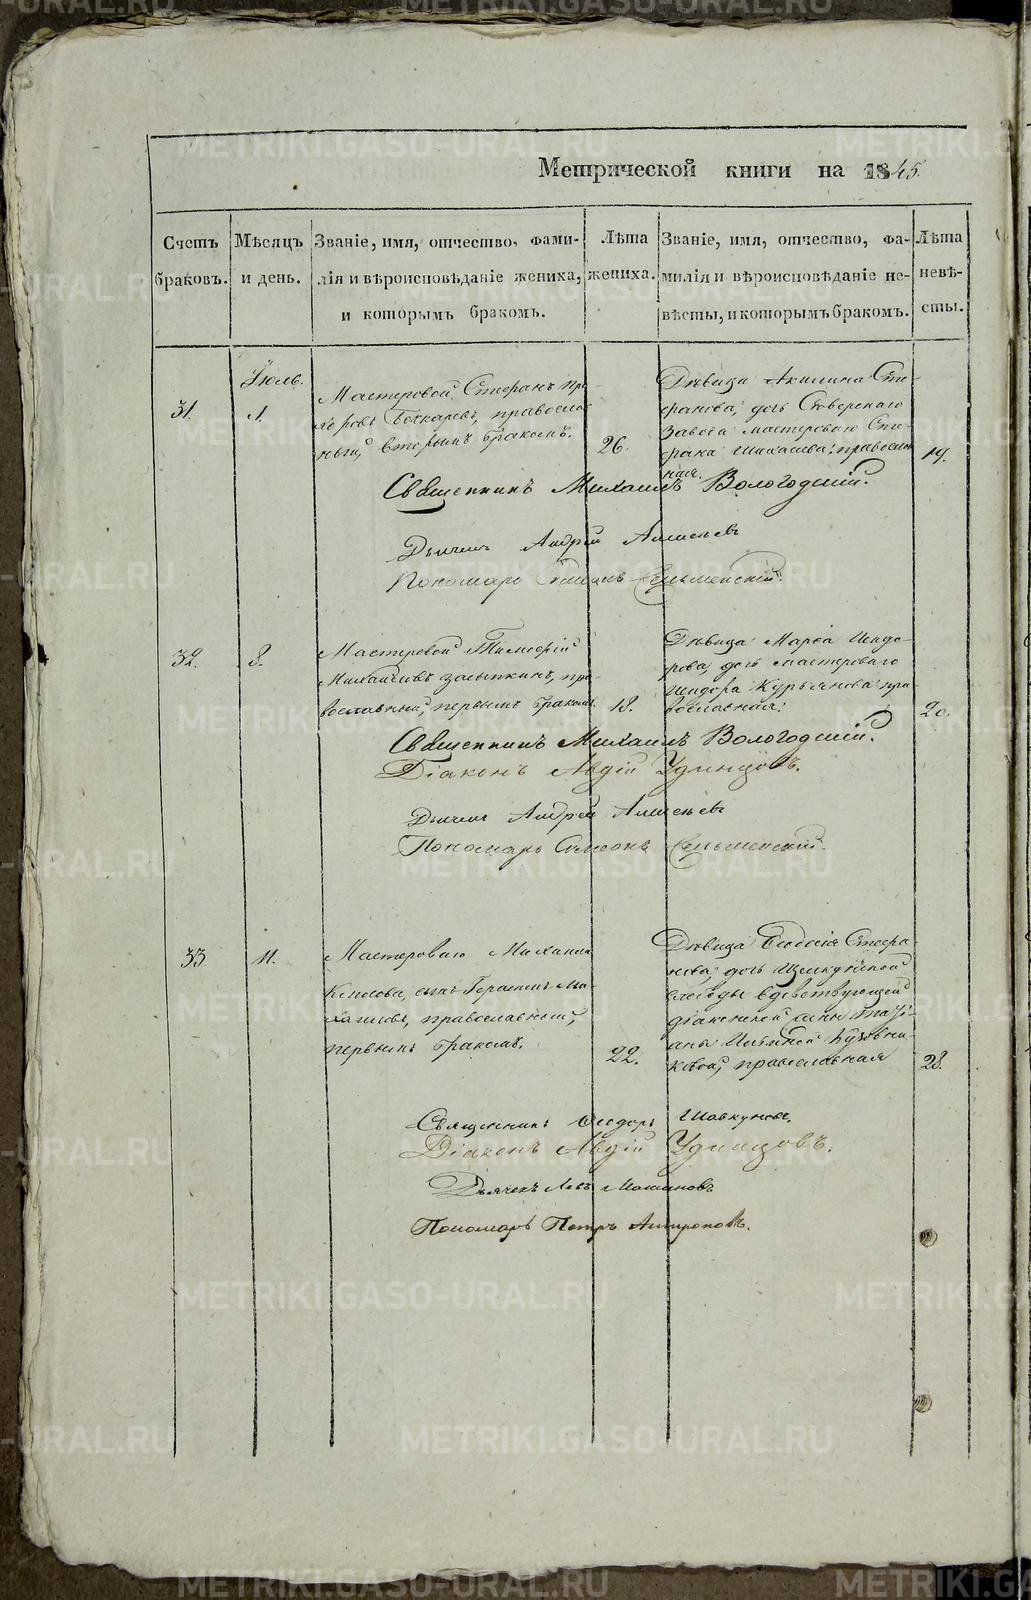 Метрической книги на 1845.
Счетъ браковъ.
Мѣсяцъ и день.
Званіе, имя, отчество, фами-
лія и вѣроисповѣданіе жениха,
и которымъ бракомъ.
Лѣта жениха.
Званіе, имя, отчество, фа-
милія и вѣроисповѣданіе не-
вѣсты, и которымъ бракомъ.
Лѣта невѣ-
сты.
31.
Іюль.
1.
Мастеровой Стефанъ
Бочкаревъ, православ
ный, вторымъ бракомъ.
26.
Дѣвица Акилина Сте-
фанова, дочь Сѣверскаго
завода мастероваго Сте-
фана православ
ная.
19.
Священникъ Михаилъ Вологодскій.
Дьячекъ Андрей
Пономарь Симеонъ
32.
8.
Мастеровой Тимофій
Михайловъ Засыпкинъ, пра-
вославный, первымъ бракомъ.
18.
Дѣвица Марѳа Исидо-
рова, дочь мастероваго
Исидора Курьянова пра
вославная.
20.
Священникъ Михаилъ Вологодскій.
Діаконъ Авдій Удинцовъ.
Дьячекъ Андрей
Пономарь Симеонъ
33
11.
Мастероваго Михаила
Колосова, сынъ Герасимъ Ми-
хаиловъ, православный,
первымъ бракомъ.
22.
Дѣвица Ѳеодосія Стефа-
нова, дочь
слободы вдовствующей
діаконской жены Татьі-
аны Ильиной
православная
28.
Священникъ Ѳеодоръ Шавкуновъ.
Діаконъ Авдій Удинцовъ.
Дьячекъ Левъ
Пономарь Петръ Антроповъ.
METRIKI.GASO-URAL.RU